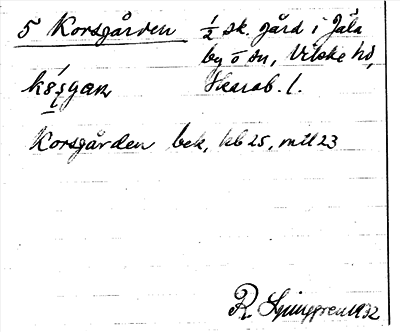 5 Korsgården ½ sk. gård i Jäla
by o sn, Vilske hd,
Skarab. l.
Korsgården bek, hb 25, mtl 23
R Ljunggren 1932